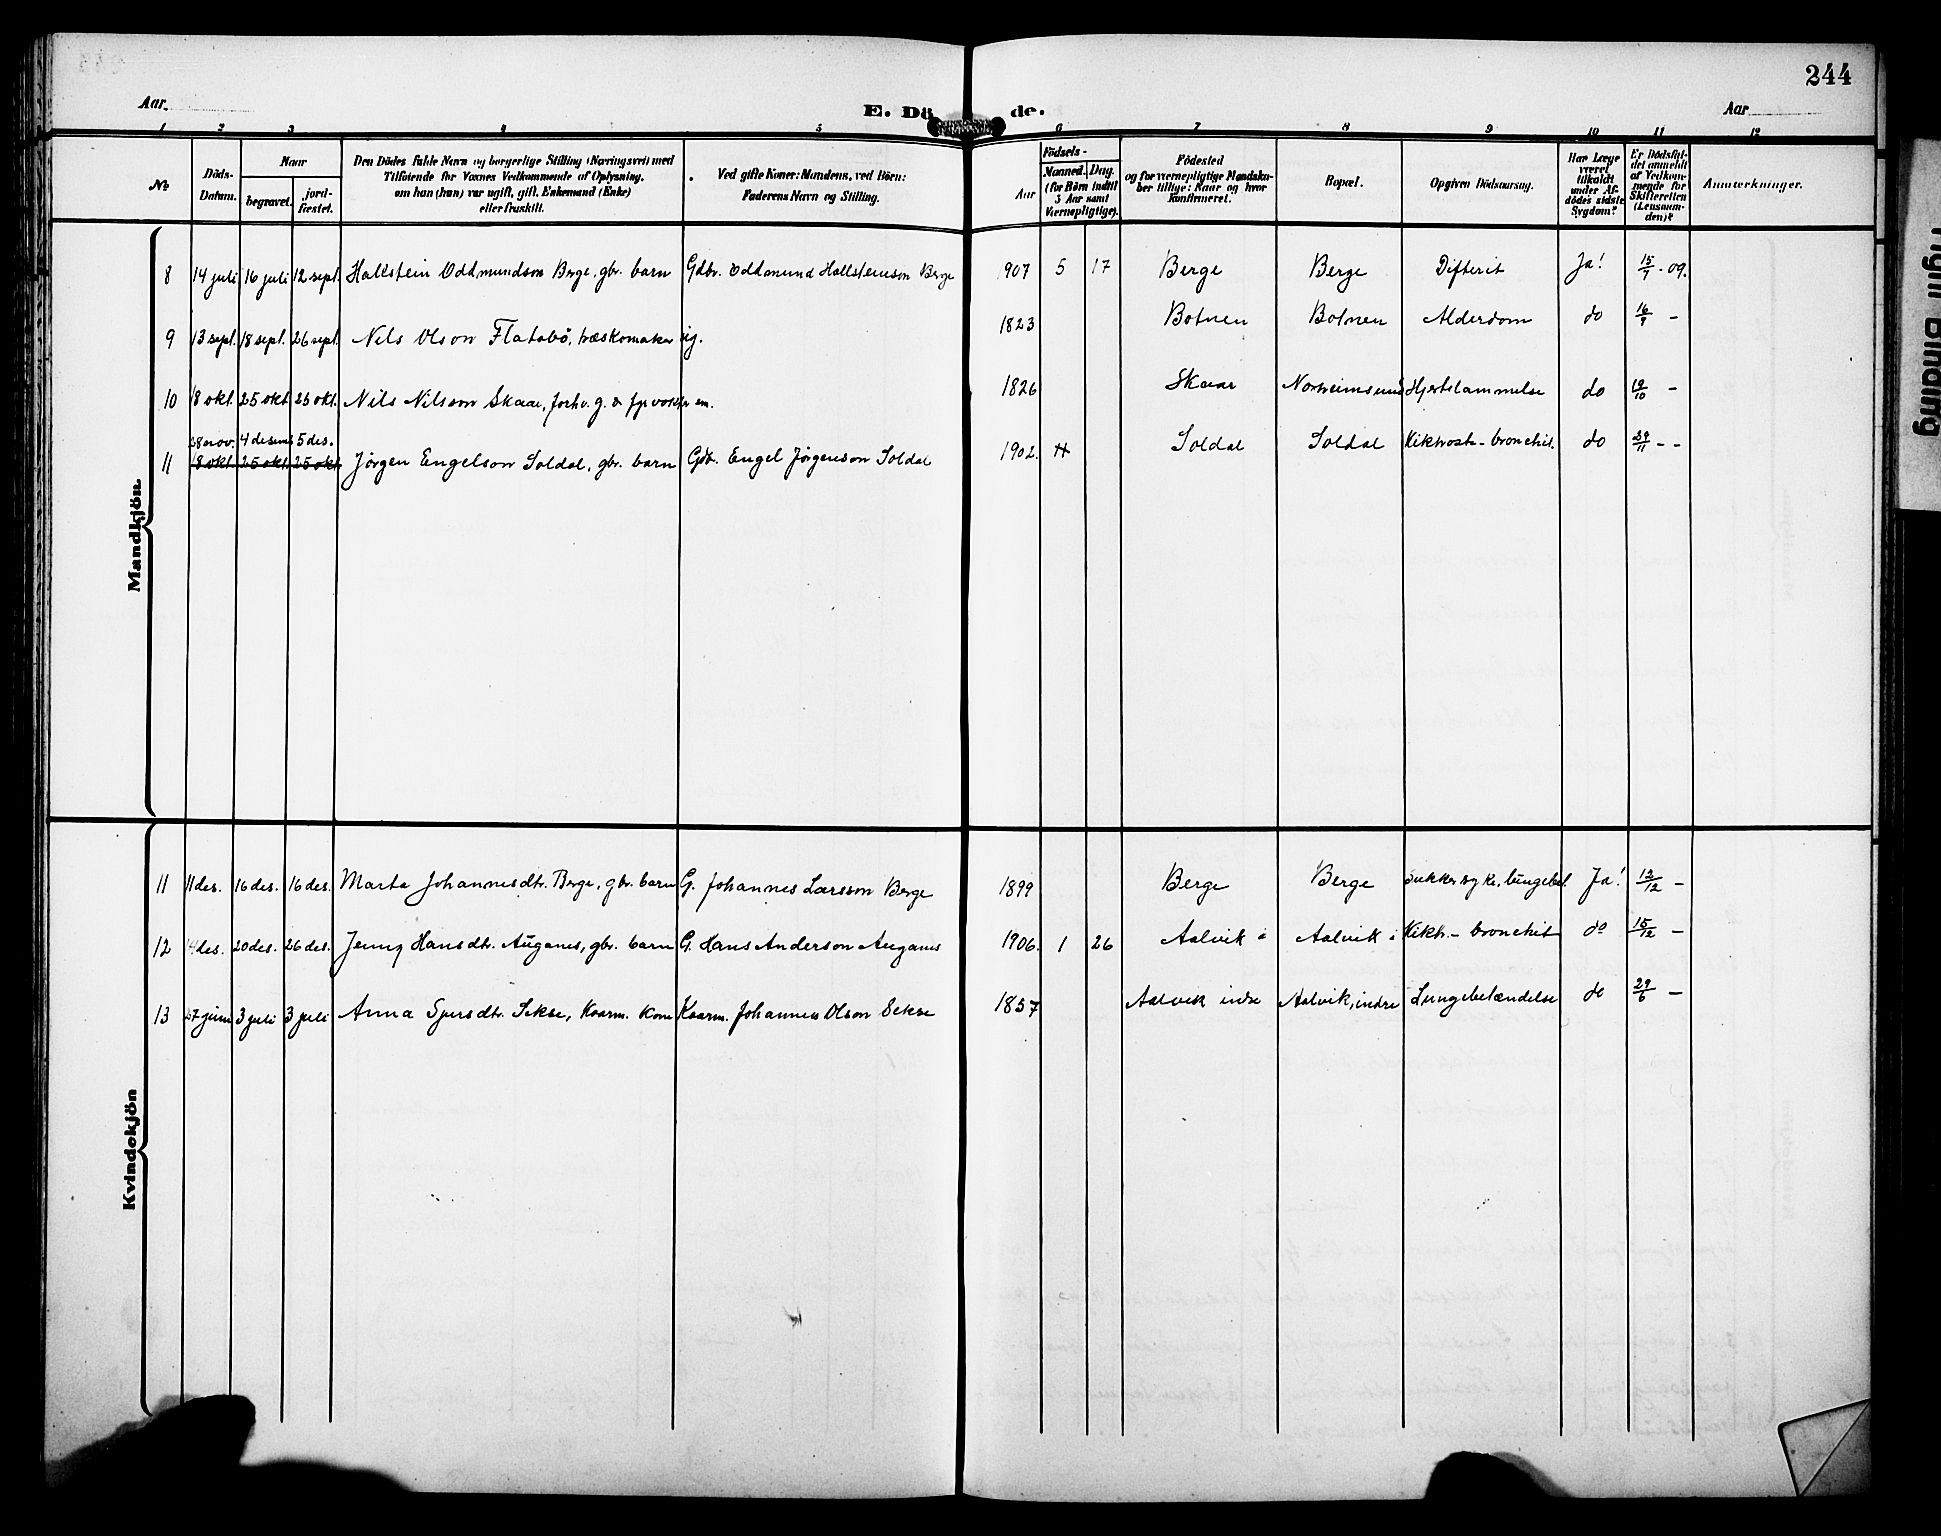 244
Aar
E. Döde.
Aar
1 2 3 4 5 6 7 8 9 10 11 12
No
Döds-Datum.
Naar
begravet.
jord-fæstet.
Den Dödes fulde Navn og borgerlige Stilling (Næringsvei) med
Tilföiende for Voxnes Vedkommende af Oplysning,
om han (hun) var ugift, gift, Enkemand (Enke)
eller fraskilt.
Ved gifte Koner: Mandens, ved Börn:
Faderens Navn og Stilling.
Födsels-
Aar
Maaned. Dag.
(for Börn indtil
3 Aar samt
Værnepligtige).
Födested
og for værnepligtige Mandska-
ber tillige: Naar og hvor
konfirmeret.
Bopæl.
Opgiven Dödsaarsag.
Har Læge
været
tilkaldt
under Af-
dödes sidste
Sygdom?
Er Dödsfal-
det anmeldt
af Vedkom-
mende for
Skifteretten
(Lensman-
den)?
Anmærkninger.
Mandkjön.
8 14 juli 16 juli 12 sept. Hallstein Oddmundson Berge, gbr. barn Gdbr. Oddmund Hallsteinson Berge 1907 5 17 Berge Berge Difterit Ja! 15/7 - 09.
9 13 sept. 18 sept. 26 sept. Nils Olson Flatabö, træskomaker ug. 1823 Botnen Botnen Alderdom do 16/9 -
10 18 okt. 25 okt. 25 okt. Nils Nilsson Skaar, forhv. g. em. 1826 Skaar Norheimsund Hjertelammelse do 19/10 -
28 nov. 4 desem 5 des.
11 18 okt. 25 okt. 25 okt. Jörgen Engelson Soldal, gbr. barn Gdbr. Engel Jörgenson Soldal 1902. Soldal Soldal Kikhoste - bronchit. do 29/11 - -
Kvindekjön
11 11 des. 16 des. 16 des. Marta Johannesdtr. Berge, gbr. barn G. Johannes Larsson Berge 1899 Berge Berge Sukkersyke, lungebet. Ja! 12/12 -
12 14 des. 20 des. 26 des. Jenny Hansdtr. Auganes, gbr. barn G. Hans Anderson Auganes 1906. 1 26 Aalvik i Aalvik i Kikh. - bronchit do 15/12 -
13 27 juni 3 juli 3 juli Anna Sjursdtr. Sekse, Kaarm. kone Kaarm. Johannes Olson Sekse 1857 Aalvik indre Aalvik, indre Lungebetændelse do 29/6 -
Binding